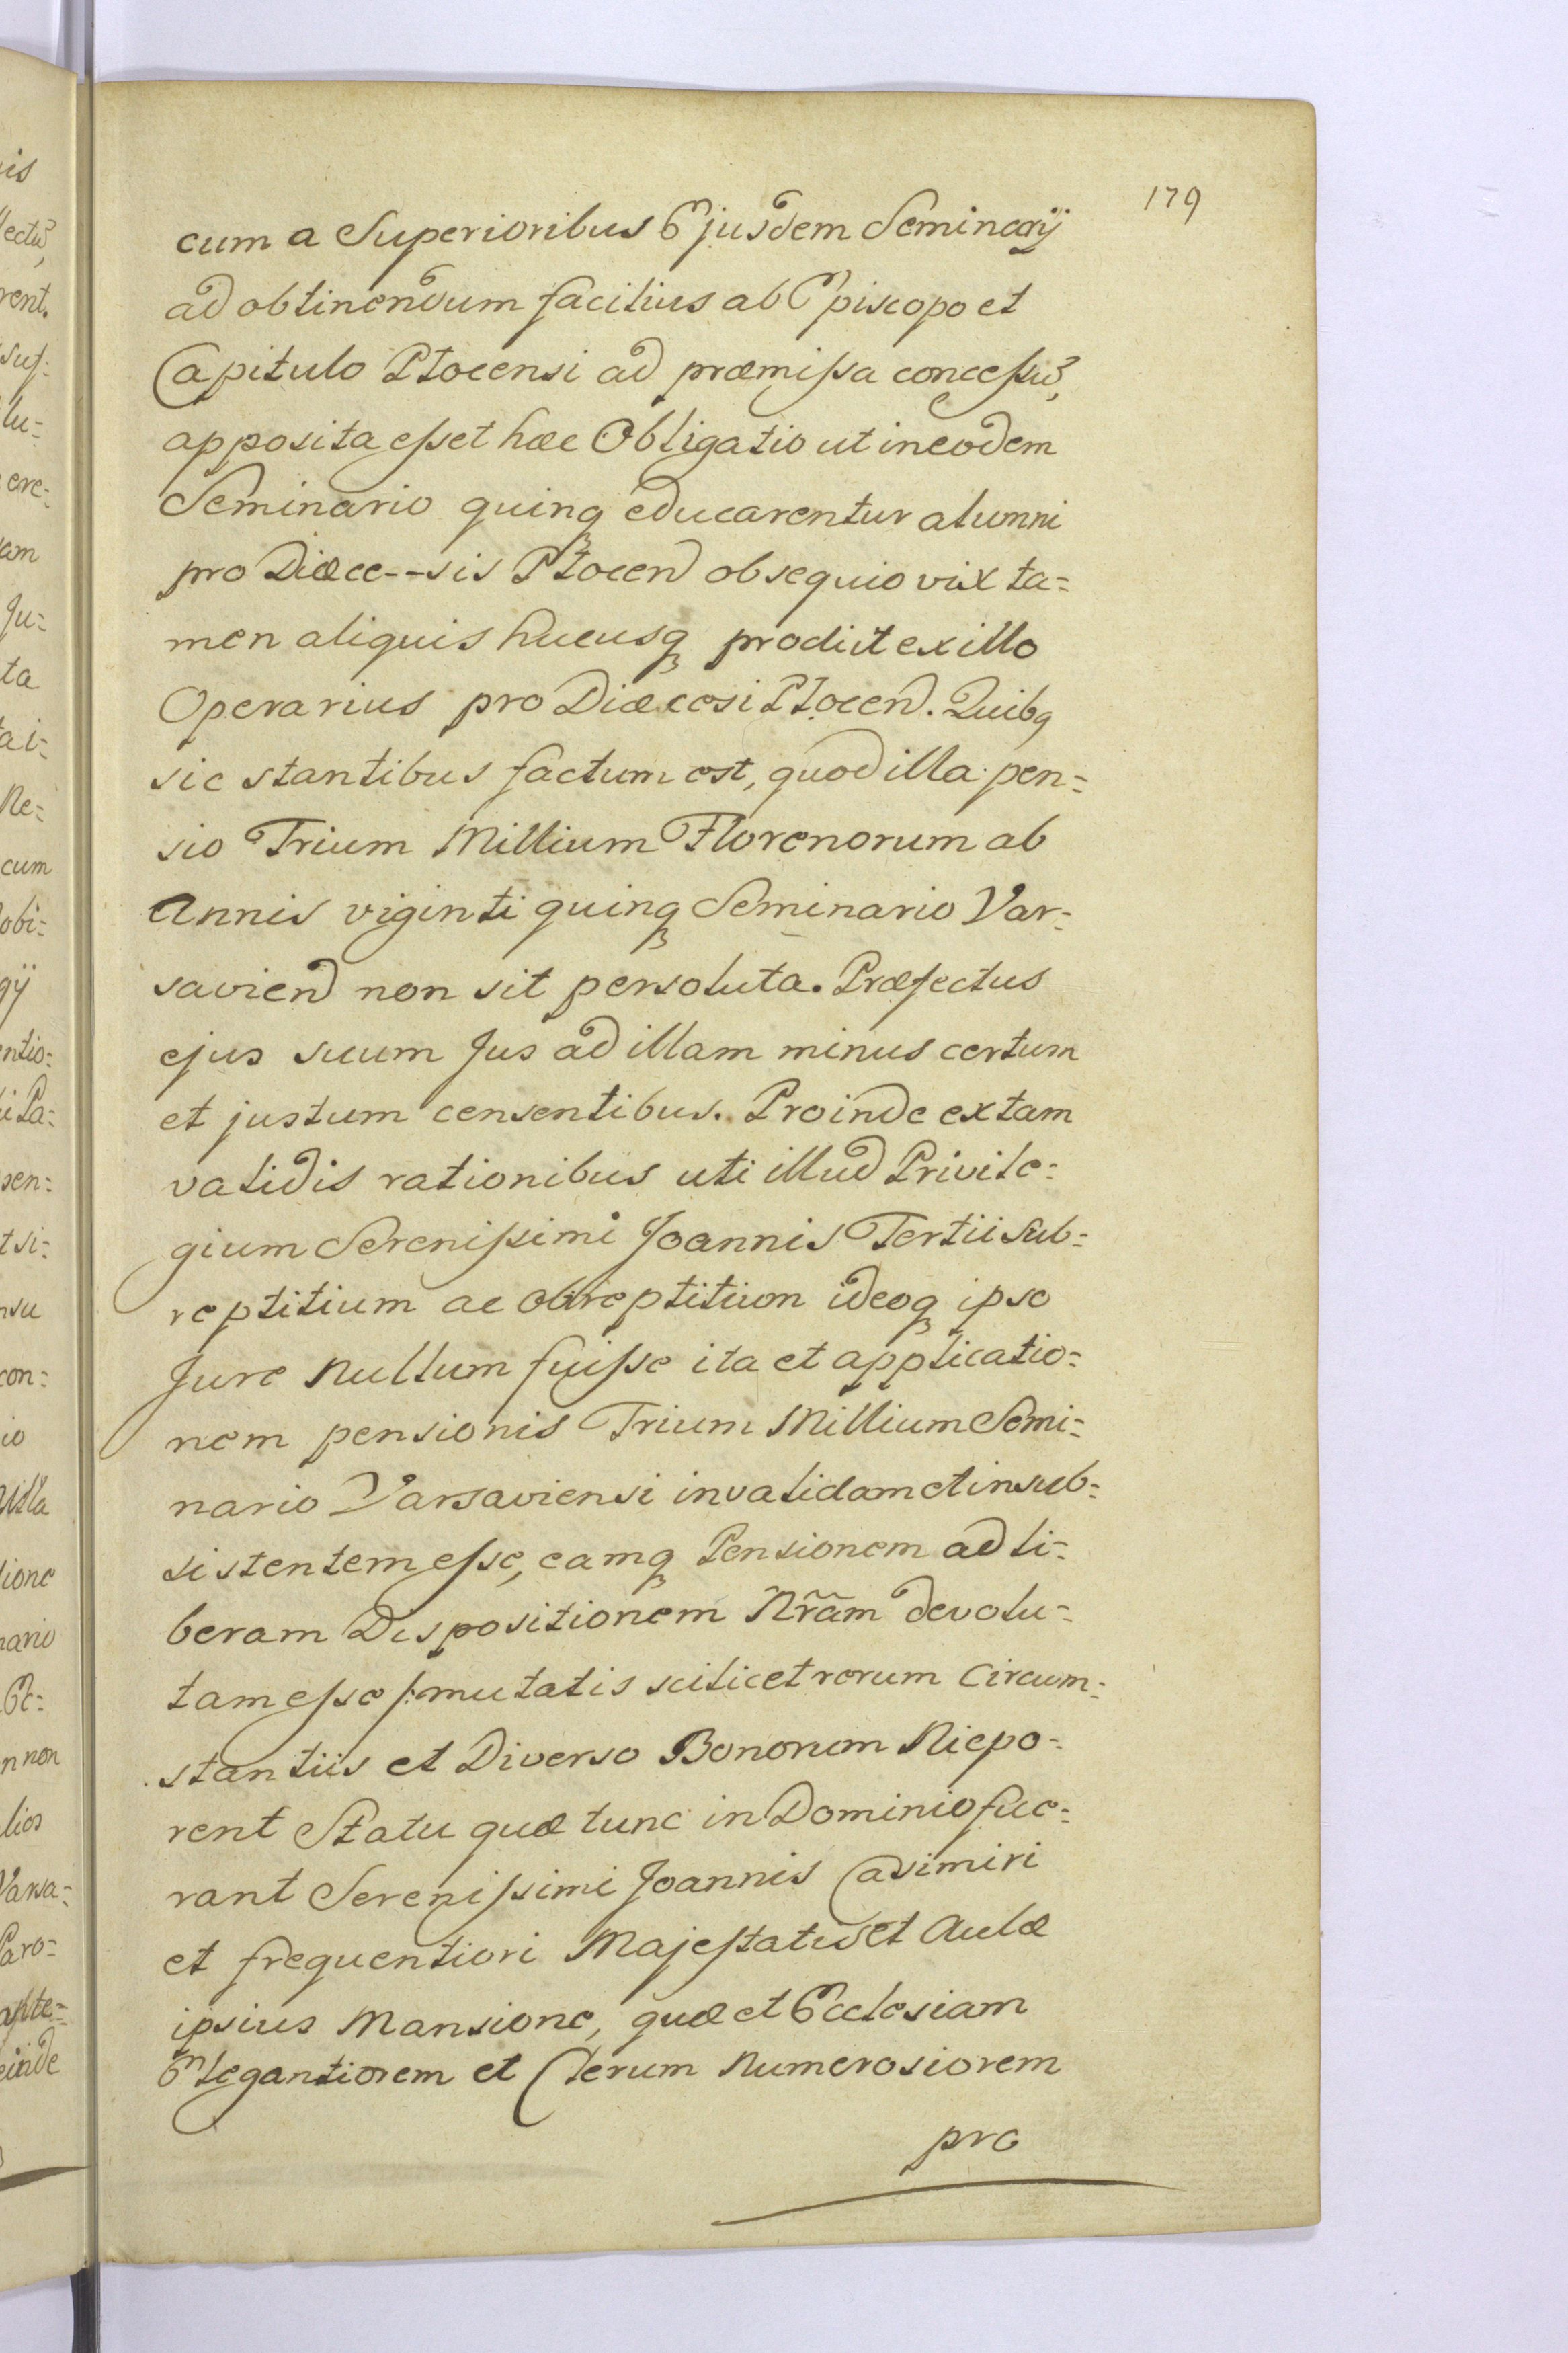 179
cum a Superioribus Ejusdem Seminarij
ad obtinendum facilius ab Episcopo et
Capitulo Plocensi ad præmissa concessũ,
apposita esset hæc Obligatio ut in eodem
Seminario quinq educarentur alumni
pro Diæce--sis Plocen obsequio vix ta=
men aliquis hucusq prodiit ex illo
Operarius pro Diæcesi Plocen. Quibq
sic stantibus factum est, quod illa pen=
sio Trium Millium Florenorum ab
Annis viginti quinq Seminario Var=
savien non sit persoluta. Præfectus
ejus suum Jus ad illam minus certum
et justum censentibus. Proinde ex tam
validis rationibus uti illud Privile=
gium Serenissimi Joannis Tertii sub=
reptitium ac obreptitium ideoq ipso
Jure Nullum fuisse ita et applicatio=
nem pensionis Trium Millium Semi=
nario Varsaviensi invalidam et insub=
sistentem esse, eamq Pensionem ad li=
beram Dispositionem Nr̃am devolu=
tam esse /: mutatis scilicet rerum Circum=
stantiis et Diverso Bonorum Niepo=
rent Statu quæ tunc in Dominio fue=
rant Serenissimi Joannis Casimiri
et frequentiori Majestatis et Aulæ
ipsius Mansione, quæ et Ecclesiam
Elegantiorem et Clerum Numerosiorem
pro
is
lectũ,
rent.
lu=
ere=
am
Ju=
ta
tai=
Re=
cum
obi=
gij
ntio=
i Pa=
pen=
t si=
nsu
con=
io
illa
lione
nario
Ec=
n non
lios
Varsa=
Paro=
einde